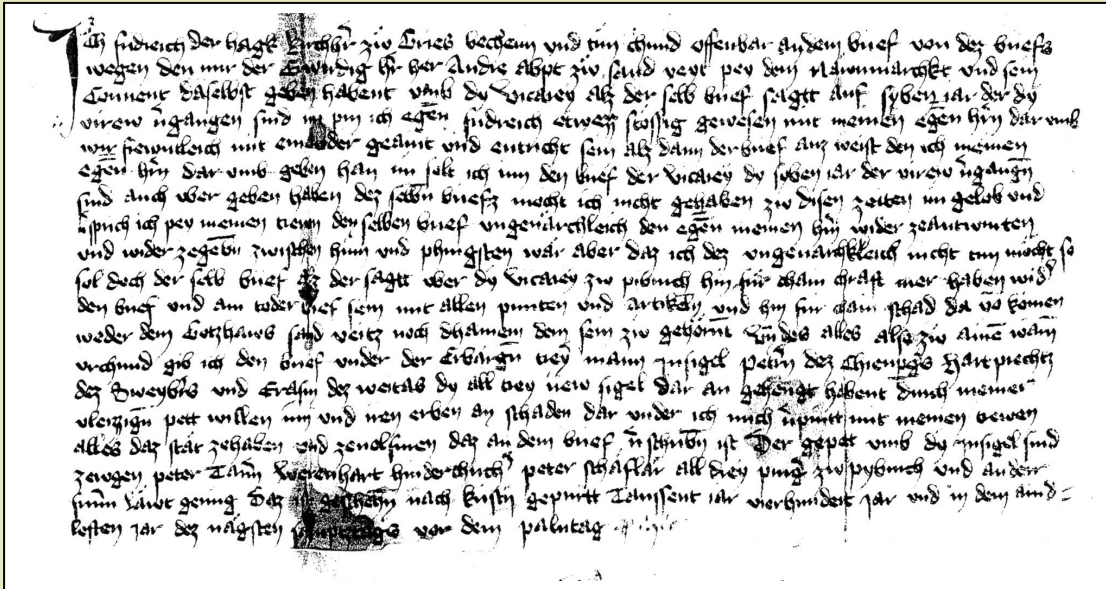 Ich fridreich der hagk kirchhr zw Gries vechenn und tun chund offenbar an dem brief von dez briefs
wegen den mir der Erwirdig hr her Andre abpt zw sand veyt pey dem Nawnmarchkt und sein
Convent daselbst geben habent umb dy vicarey alz der selb brief sagtt auf syben iar der dy
virew vgangen sind in pin ich egen fridreich etwen stossig gewesen mit meinen egen hrn dar umb
wir frewntleich mit einander geaint und entricht sein alz dann der brief auz weist den ich meinen
egen hrn dar umb geben han nu solt ich inn den brief der vicarey dy syben iar der virew vgangn
sind auch uber geben haben dez selbn briefz mocht ich nicht gehaben zw disen zeiten nu gelob und
vsprich ich pey meinen trewn den selben brief ungeuarchleich den egen meinen hrn wider zeantwurten
und wider zegebn zwischen hinn und phingsten wär aber daz ich dez ungeuarchkleich nicht tun möcht so
sol doch der selb brief alz der sagtt uber dy vicarey zw pibrich hin für chain chraft mer haben wider
den brief und ain toder brief sein mit allen punten und artikeln und hin für chain schad da von komen
weder dem Gotzhaws sand veitz noch dhainem dem sein zw gehörnt Und des alles also zw ainem warn
urchund gib ich den brief under der Erbargn treyr mann insigel petern dez Chienpgs hartprechtz
dez Sweybrs und Erasm dez weitas dy all trey irew sigel dar an gehengt habent durch meiner
vleizzign pett willen inn und iren erben an schaden dar under ich mich vpintt mit meinen trewen
alles daz stät zehaben und zeuolfuren daz an dem brief vschribn ist Der gepett umb dy insigel sind
zewgen peter Tann Werenhart hinderchirchr peter schaflar all drey purgr zw pybrich und ander
frumm lawt genug Daz ist geschehn nach kristi gepurtt Taussent iar vierhundert jar und in dem aind-
leften jar dez nägsten vor dem palmtag